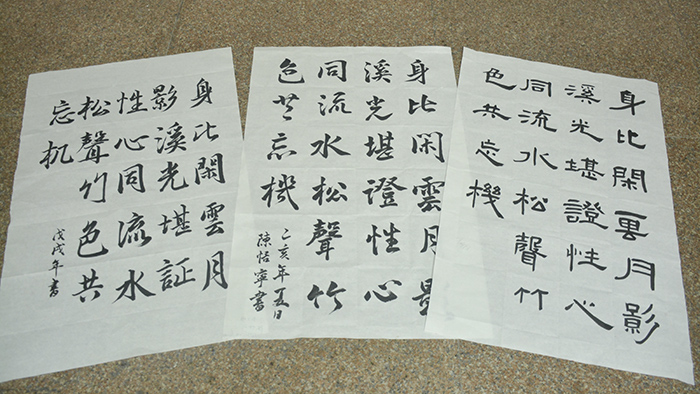 身比閑雲月
影溪光堪証
性心同流水
松聲竹色共
忘机
戊戌年書
身比閑雲月影
溪光堪證性心
同流水松聲竹
色共忘機
己亥年五日
陳恬寧書
身比閑雲月影
溪光堪證性心
同流水松聲竹
色共忘機